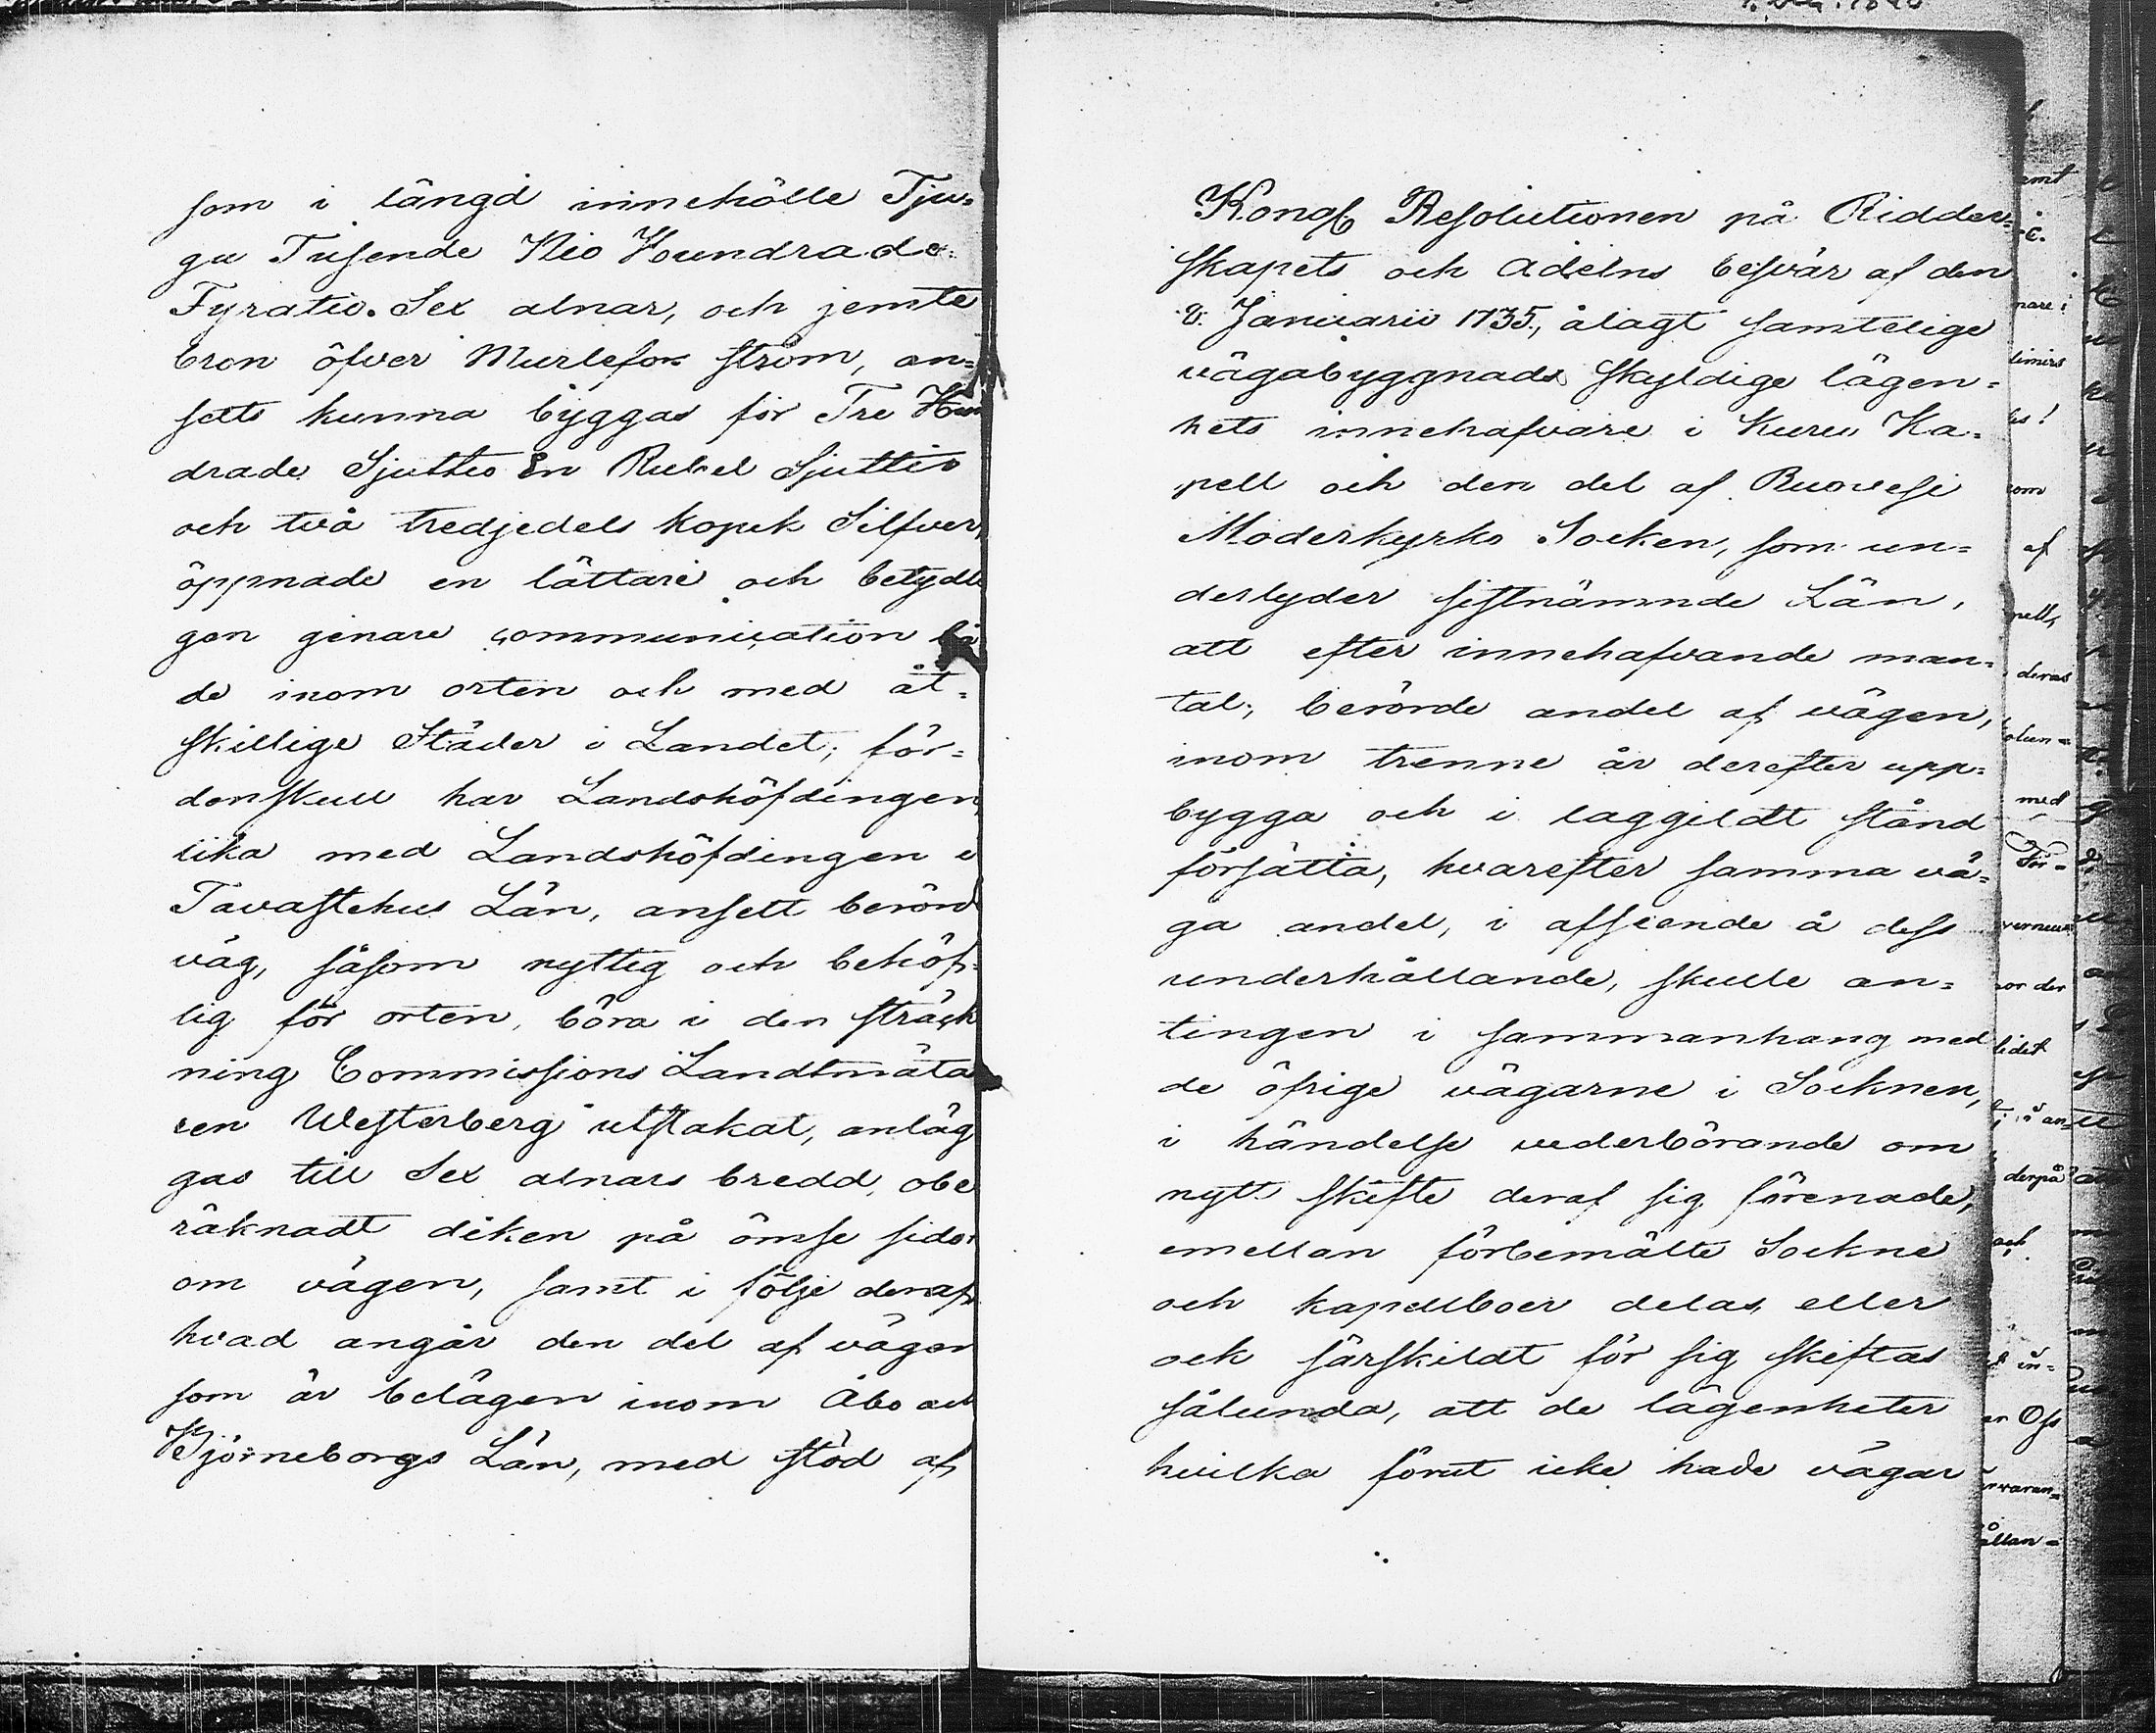 som i längd innehölle Tju-
gu Tusende Nio Hundrade
Fyratio Sex alnar, och jemte
bron öfver Murlefors ström, an-
setts kunna byggas för Tre Hun
drade Sjuttio En Rubel Sjuttio
och två tredjedels kopek Silfver,
öppnade en lättare och betydli
gen genare communication bå
de inom orten och med åt-
skillige Städer i Landet; för-
denskull har Landshöfdingen,
lika med Landshöfdingen i
Tavastehus Län, ansett berörd
väg, såsom nyttig och behöf-
lig för orten, böra i den sträck
ning Commissions Landtmäta
ren Westerberg utstakat, anläg
gas till Sex alnars bredd, obe
räknadt diken på ömse sidor
om vägen, samt i följe deraf,
hvad angår den del af vägen
som är belägen inom Åbo och
Björneborgs Län, med stöd af
Kongl Resolutionen på Ridder-
skapets och Adelns besvär af den
8. Januarii 1735, ålagt samtelige
vägabyggnads skyldige lägen-
hets innehafvare i Kuru Ka-
pell och den del af Ruovesi
Moderkyrko Socken, som un-
derlyder sistnämnde Län,
att efter innehafvande man-
tal, berörde andel af vägen,
inom trenne år derefter upp-
bygga och i laggildt stånd
försätta, hvarefter samma vä-
ga andel, i afseende å dess
underhållande, skulle an-
tingen i sammanhang med
de öfrige vägarne i Socknen,
i händelse vederbörande om
nytt skifte deraf sig förenade,
emellan förbemälte Sockne
och kapellboer delas, eller
ock särskildt för sig skiftas
sålunda, att de lägenheter
hvilka förut icke hade vägar